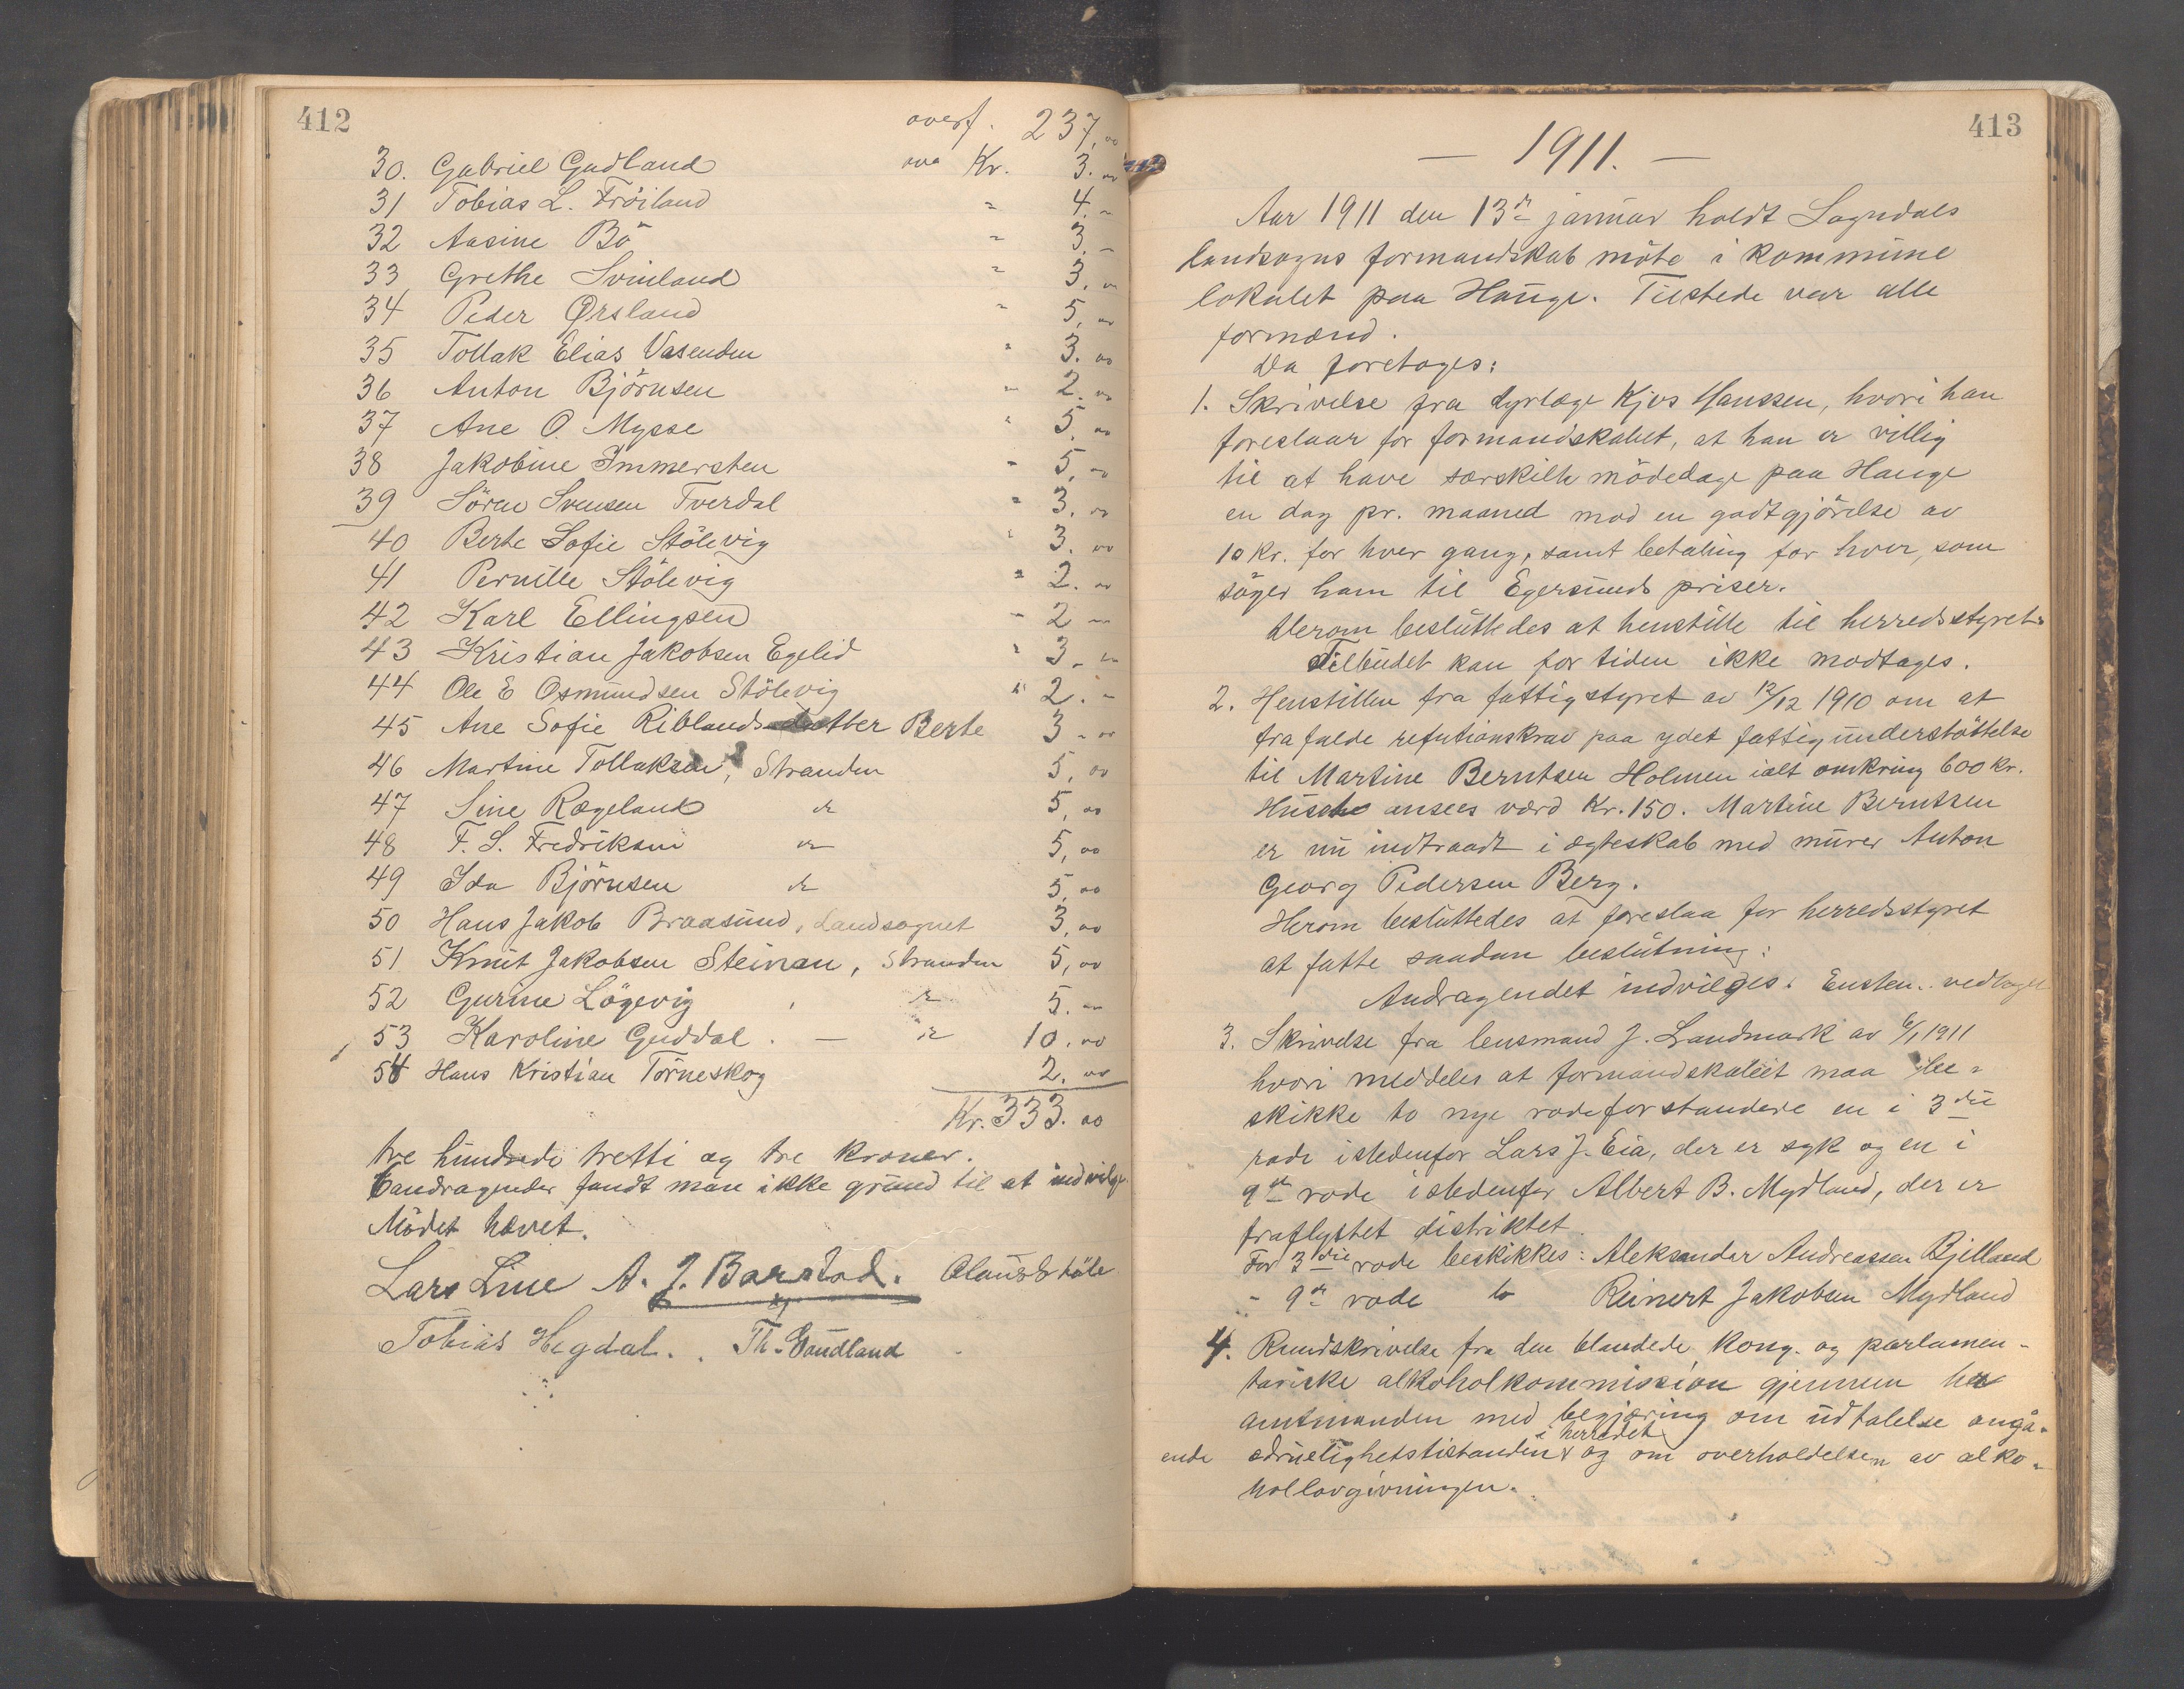 412
overf. 237,00
30. Gabriel Gudland Kr. 3.00
31 Tobias L. Fröiland " 4.-
32 Aasine Bö " 3.-
33 Grethe Svinland " 3.00
34 Peder Ørsland " 5,00
35 Tollak Elias Vasenden " 3.00
36 Anton Björnsen " 2.00
37 Ane O. Mysse " 5,00
38 Jakobine Immersten " 5,00
39 Sören Svensen Tverdal " 3.00
40 Berte Sofie Stölevig " 3.00
41 Pernille Stölevig " 2.00
42 Karl Ellingsen - 2 -
43 Kristian Jakobsen Egelid " 3.-
44 Ole E Osmundsen Stölevig " 2.-
45 Ane Sofie Riblands datter Berte 3-00
46 Martine Tollaksen, Stranden 5,00
47 Sine Rægeland do 5,00
48 F. S. Fredriksen do 5,00
49 Ida Björnsen do 5,00
50 Hans Jakob Braasund, Landsognet 3,00
51 Knut Jakobsen Steinan, Stranden 5,00
52 Gurine Lögevig do 5.-
53 Karoline Guddal. - do 10.00
54 Hans Kristian Törneskog 2.00
Kr. 333.00
tre hundrede tretti og tre kroner.
6 andragender fandt man ikke grund til at indvilge
Mödet hævet.
Lars Line A. J. Barstad. Claus Stöle
Tobias Hegdal. Th. Gundland
413
— 1911. —
Aar 1911 den 13de januar holdt Sogndals
landsogns formandskab möte i kommune
lokalet paa Hauge. Tilstede var alle
formænd.
Da foretoges:
1. Skrivelse fra dyrlæge Kjos Hanssen, hvori han
foreslaar for formandskabet, at han er villig
til at have særskilte mödedage paa Hauge
en dag pr. maaned mod en godtgjörelse av
10 kr. for hver gang, samt betaling for hver, som
söger ham til Egersunds priser.
Herom besluttedes at henstille til herredsstyret:
Tilbudet kan for tiden ikke modtages.
2. Henstillen fra fattigstyret av 12/12 1910 om at
frafalde refutionskrav paa ydet fattigunderstöttelse
til Martine Berntsen Holmen ialt omkring 600 kr.
Huset ansees værd Kr. 150. Martine Berntsen
er nu indtraadt i ægteskab med murer Anton
Georg Pedersen Berg.
Herom besluttedes at foreslaa for herredsstyret
at fatte saadan beslutning:
Andragendet indvilges. Enstem. vedtaget
3. Skrivelse fra lensmand J. Landmark av 6/1 1911
hvori meddeles at formandskabet maa be-
skikke to nye rodeforstandere en i 3die
rode istedenfor Lars J. Eia, der er syk og en i
9de rode istedenfor Albert B. Mydland, der er
fraflyttet distriktet.
For 3die rode beskikkes: Aleksander Andreassen Bjelland
- 9de rode do Reinert Jakobsen Mydland
4. Rundskrivelse fra den blandede kong. og parlamen-
tariske alkoholkommission gjennem hr
amtmanden med begjæring om udtalelse angå-
ende ædruelighetstilstanden i herredet og om overholdelsen av alko-
hollovgivningen.